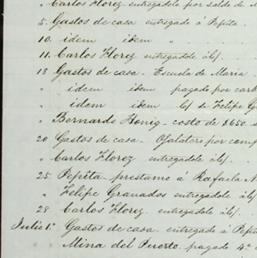 " Carlos Florez entregadole por saldo de
5. Gastos de casa entregado á Pepita.
10. idem idem
11. Carlos Florez entregadole á/c/
13 Gastos de casa. Escuela de Maria
" idem idem pagado por
" idem idem á/c/ de Felipe
" Bernardo Honig - costo de $650.
20 Gastos de casa. Ojalatero por
" Carlos Florez entregadole
25 Pepita prestamo á Rafaela
" Felipe Granados entregadole
28 Carlos Florez entregadole á/c/
Julio 1º Gastos de casa entregado á
" Mina del pagado 4º